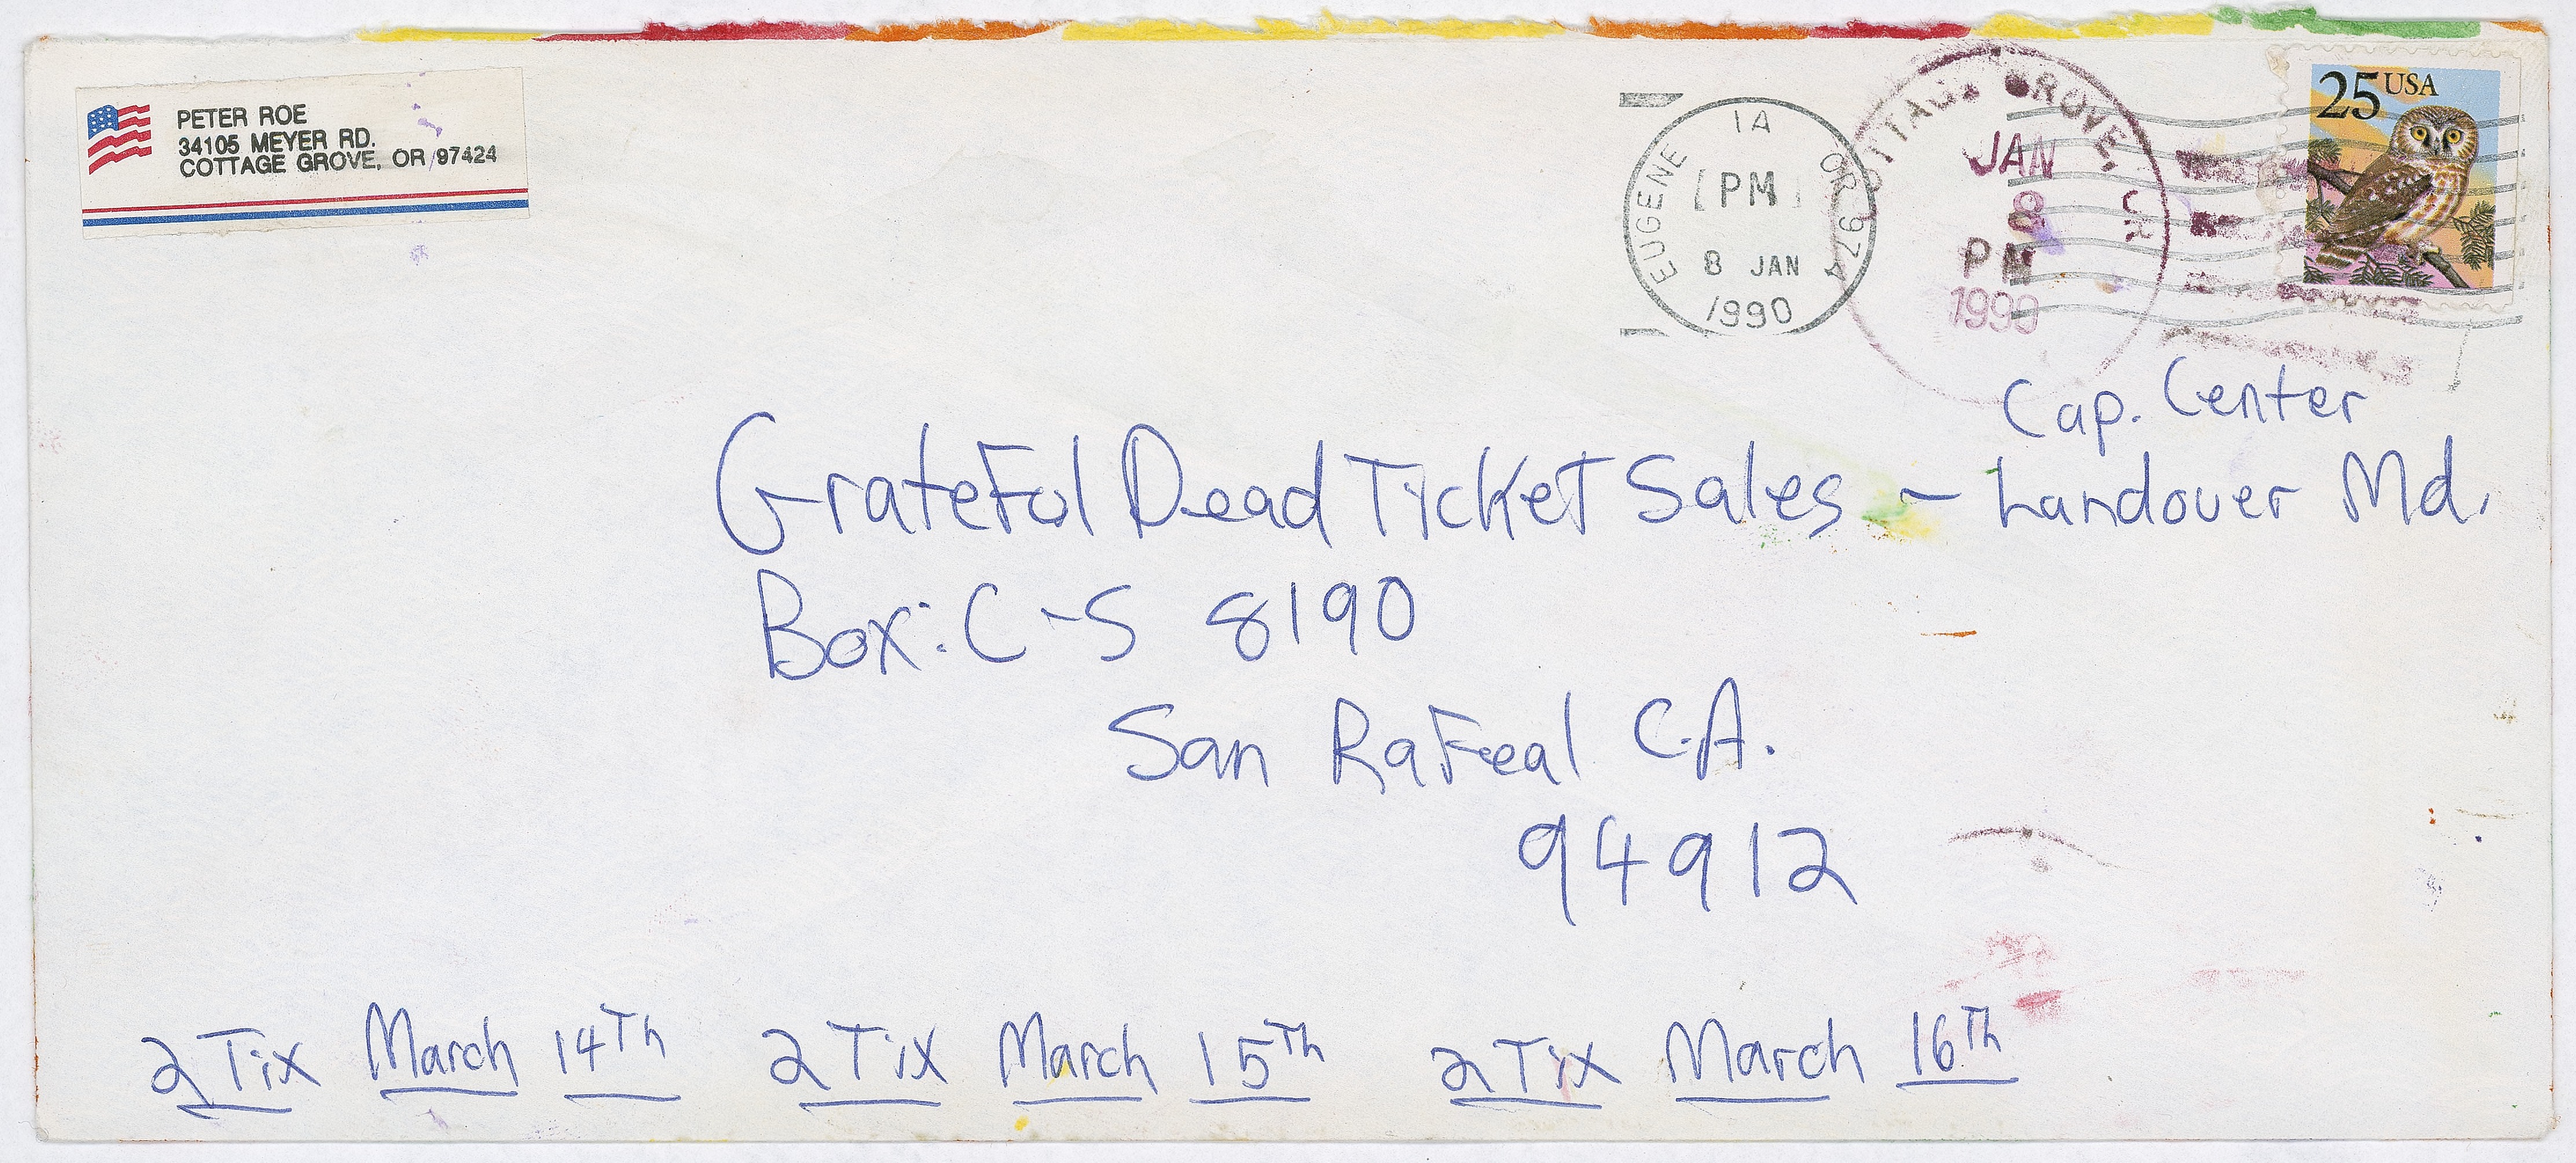 PETER ROE
34105 MEYER RD.
COTTAGE GROVE, OR 97424
EUGENE OR 974
1A
PM
8 JAN
1990
COTTAGE GROVE, OR
JAN
8
PM
1990
25 USA
Cap. Center
Grateful Dead Ticket Sales - Landover Md.
Box: C-S 8190
San Rafeal C.A.
94912
2 Tix March 14Th 2 Tix March 15Th 2 Tix March 16Th